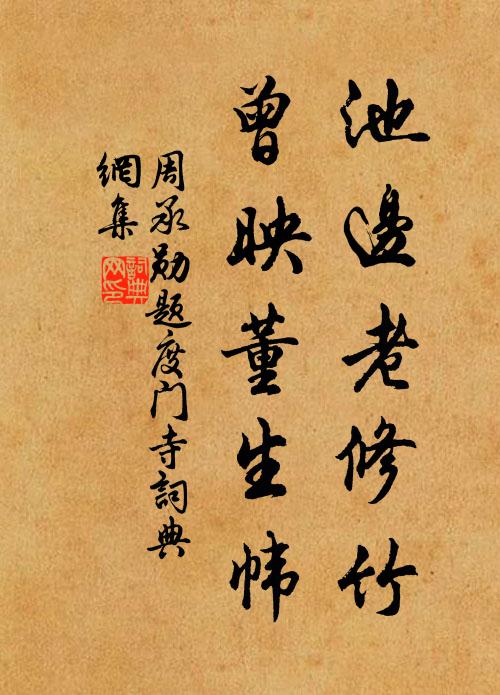 池邊老修竹
曾映董生帏
周承勋題度门寺詞典
網集
詞典
网印